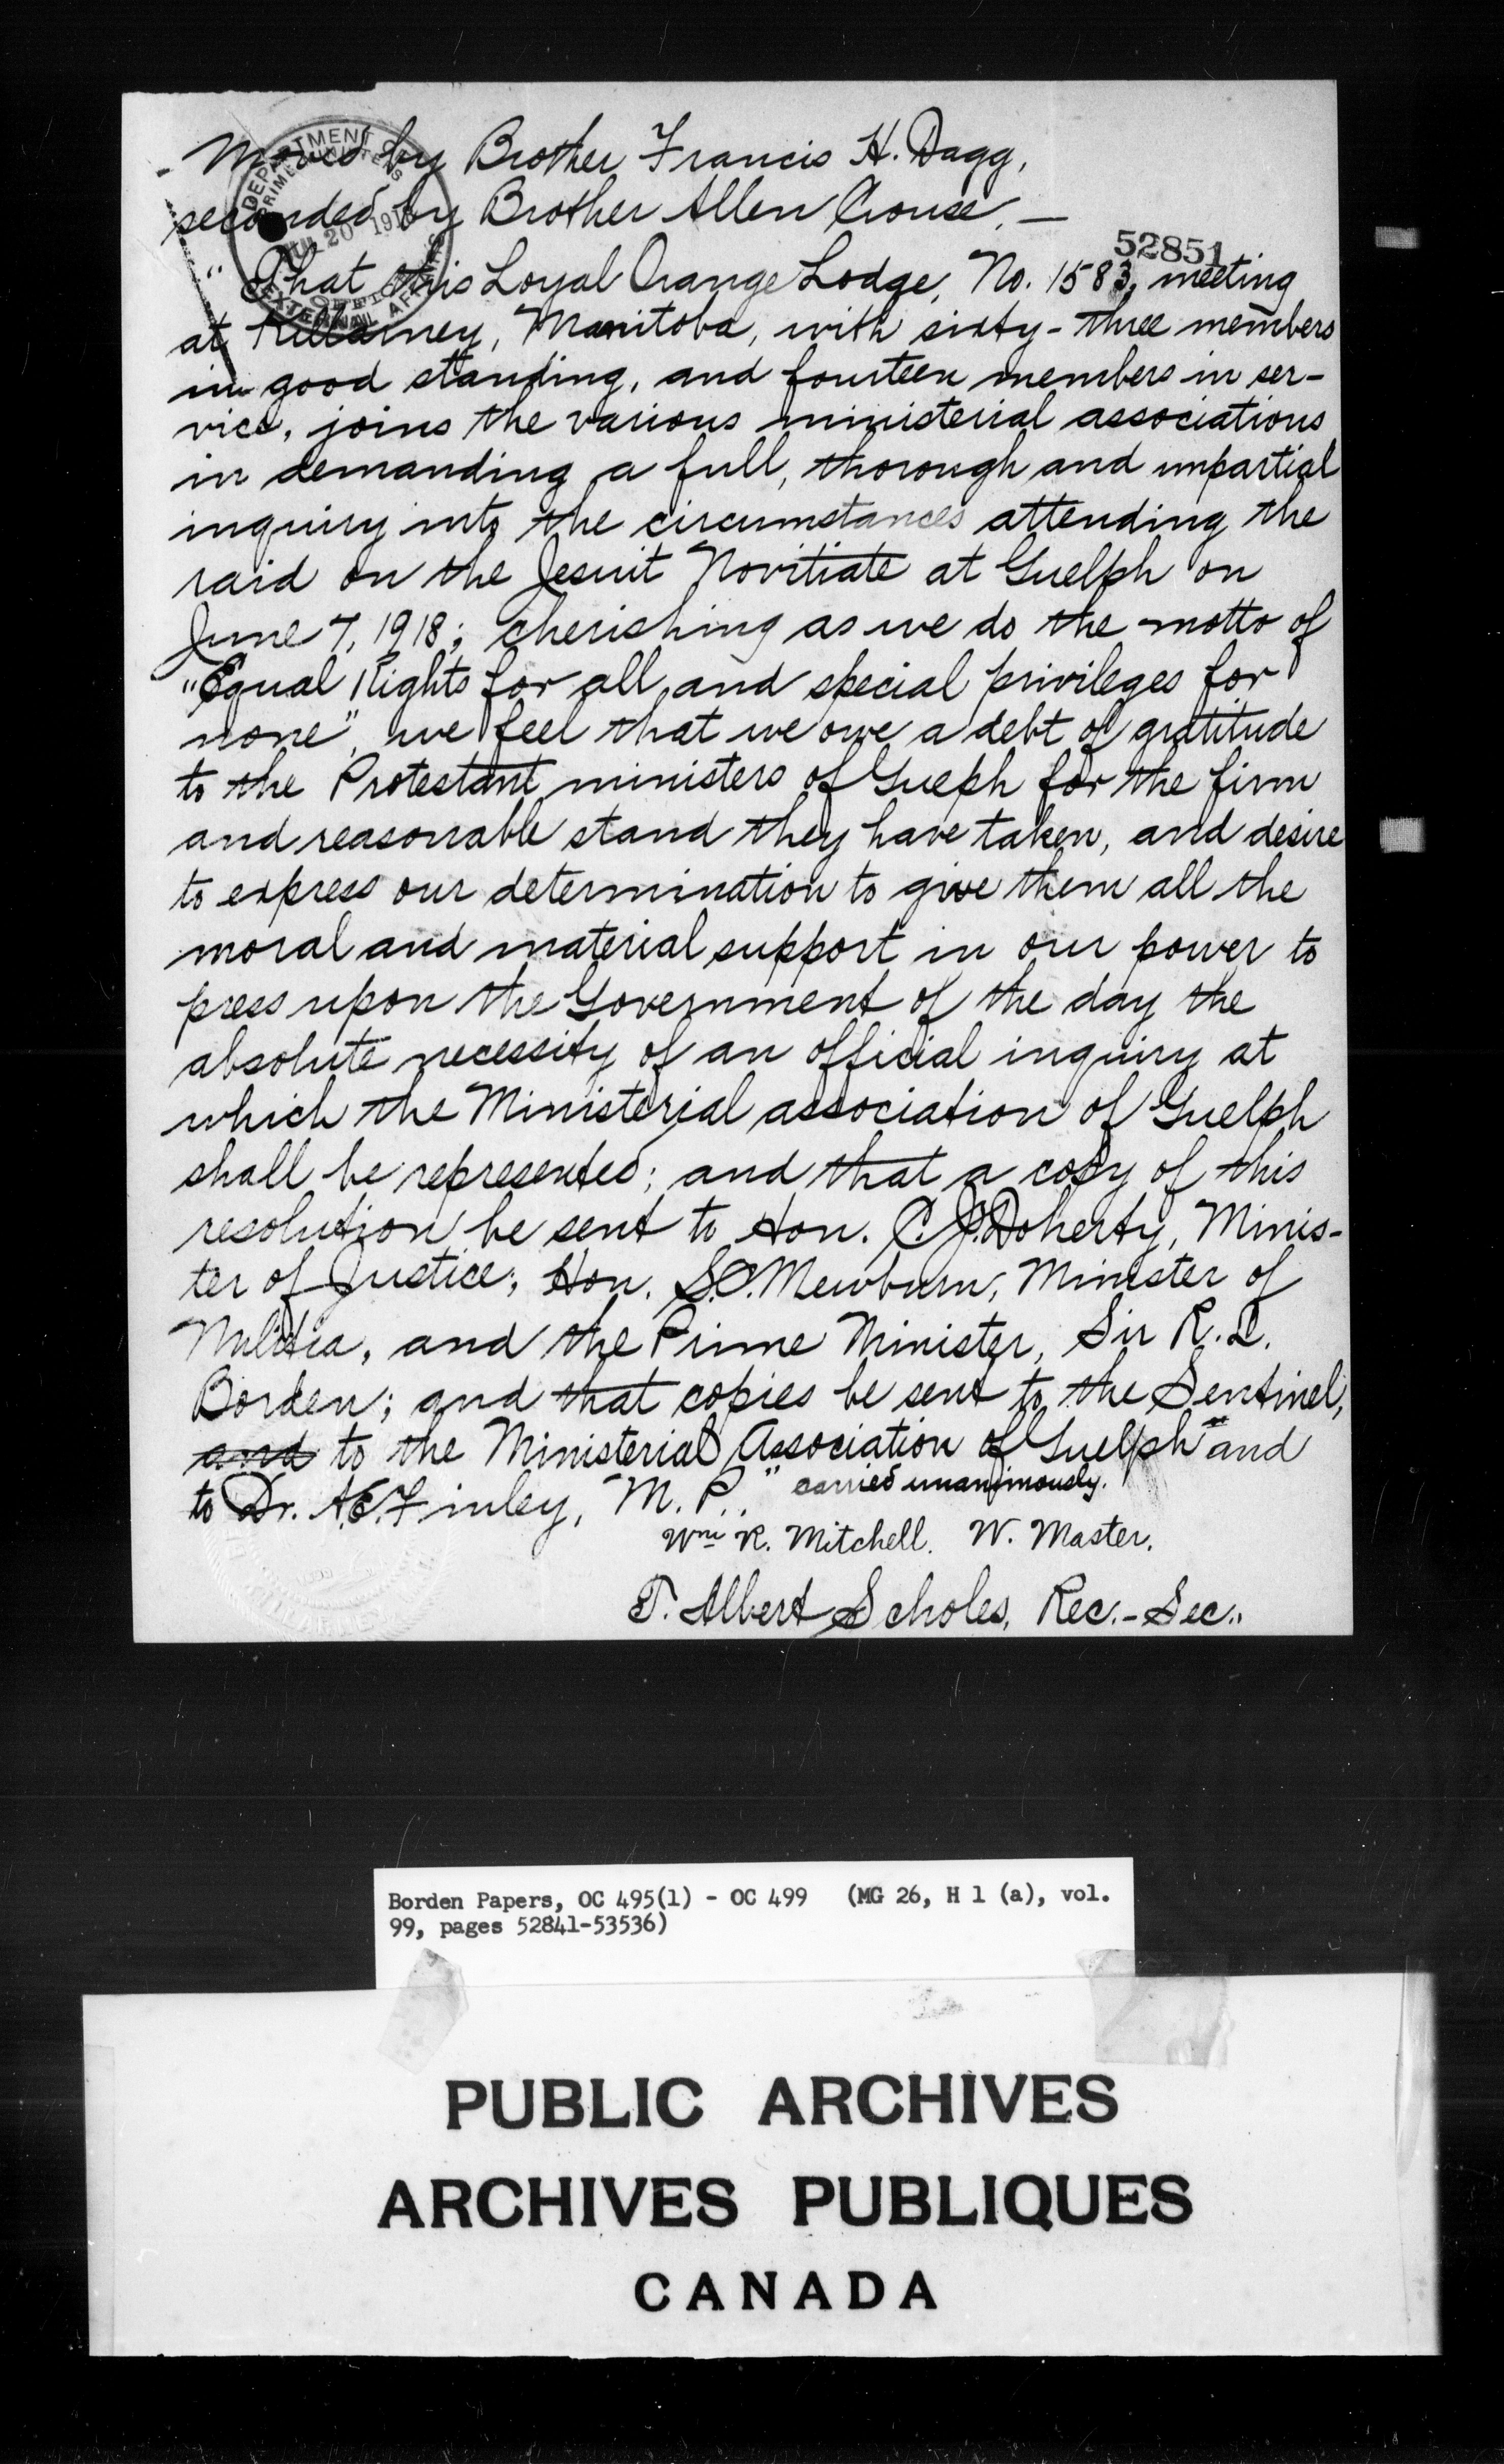 Moved by Brother Francis H. Dagg,
seconded by Brother Allen Crouse, —
52851
"That this Loyal Orange Lodge, No. 1583, meeting
at Killarney, Manitoba, with sixty-three members
in good standing, and fourteen members in ser-
vice, joins the various ministerial associations
in demanding a full, thorough and impartial
inquiry into the circumstances attending the
raid on the Jesuit Novitiate at Guelph on
June 7, 1918; cherishing as we do the motto of
"Equal Rights for all and special privileges for
none", we feel that we owe a debt of gratitude
to the Protestant ministers of Guelph for the firm
and reasonable stand they have taken, and desire
to express our determination to give them all the
moral and material support in our power to
press upon the Government of the day the
absolute necessity of an official inquiry at
which the Ministerial association of Guelph
shall be represented; and that a copy of this
resolution be sent to Hon. C.J. Doherty, Minis-
ter of Justice; Hon. S.C. Mewburn, Minister of
Militia, and the Prime Minister, Sir R. L.
Borden; and that copies be sent to the Sentinel,
and to the Ministerial Association of Guelph and
to Dr. A.E. Finley, M. P.." carried unanimously.
Wm R. Mitchell. W. Master.
T. Albert Scholes, Rec.-Sec..
DEPARTMENT OF
PRIME MINISTER'S
20 1918
OFFICE
EXTERNAL AFFAIRS
Borden Papers, OC 495(1) - OC 499 (MG 26, H 1 (a), vol.
99, pages 52841-53536)
PUBLIC ARCHIVES
ARCHIVES PUBLIQUES
CANADA